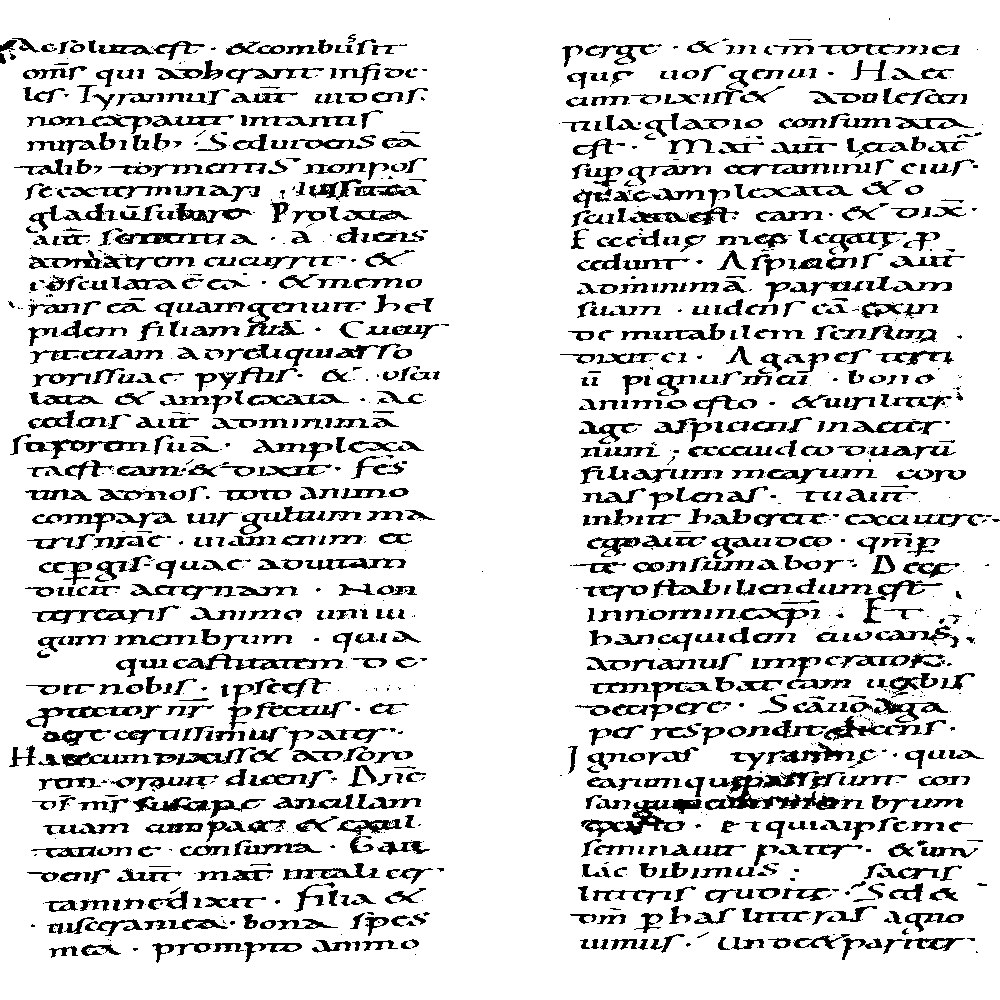 Absoluta est · & combusit
om̅s qui adherant infide
les · Tyrannus aut̅ uidens ·
non expauit instantis
mirabilib; · Seduodens ea̅
talib; tormentis non pos
se exterminari · iussit ea̅
gladiu̅ subire Prolata
aut̅ sententia · a diens
ad matrem cucurrit · &
osculata e̅ ea̅ · & memo
rans ea̅ quam genuit hel
pidem filiam sua̅ · Cucur
rit etiam ad reliquias so
roris suae pystis · & oscu
lata & amplexata · Ac
cedens aut̅ ad minima̅
sororem sua̅ · amplexa
ta est eam · & dixit · fes
tina ad nos · toto animo
compara uirgultum ma
tris nr̅ae · uiam enim et
ce p̲gis · quae ad uitam
ducit aeternam · Non
terrearis animo uni iu
gum membrum · quia
qui castitatem de
dit nobis · ipse est
p̲tector nr̅ p̲fectus · et
certissimus pater ·
Haec cum dixiss& ad soro
rem · orauit dicens · Dn̅e
ds̅ mr̅ suscipe ancillam
tuam cum pace & exul
tatione consuma · Gau
dens aut̅ mat̅ in tali cer
tamine dixit · filia &
uisceramea · bona spes
mea · prompto animo
perge · & in cm̅ totemei
que uos genui · Haec
cum dixiss& adulescen
tula · gladio consumata
est · Mat̅ aut̅ letabat̅
sup̲ gra̅m certaminis eius ·
quae amplexata & o
sculata est eam · & dix̅ ·
Ecce duę meę legatę p̲
cedunt · Aspiciens aut̅
ad minima̅ paruulam
suam · uidens ea̅ exin
de mutabilem sensum ·
dixit ei · Agapes terti
u̅ pignus meu̅ · bono
animo esto · & uiriliter
age aspiciens in aeter
num ; ecce uideo duaru̅
filiarum mearum coro
nas plenas · tu aut̅
inhitt haberete excutere ·
ego aut̅ gaudeo · qm̅ p̲
te consumabor · Dece
tero stabiliendum est
in nomine xp̅i · Et
hanc quidem euocans ·
adrianus imperator ·
temptabat eam uerbis
decipere · Sed aga
pes respondit dicens ·
Ignoras tyranne · quia
earum quę passę sunt con
sanguinearum membrum
exsisto · et quia ipse me
seminauit pater · & unu̅
lac bibimus ; sacris
litteris erudite · Sed &
om̅ p̲ has litteras agno
uimus · Unde & pariter